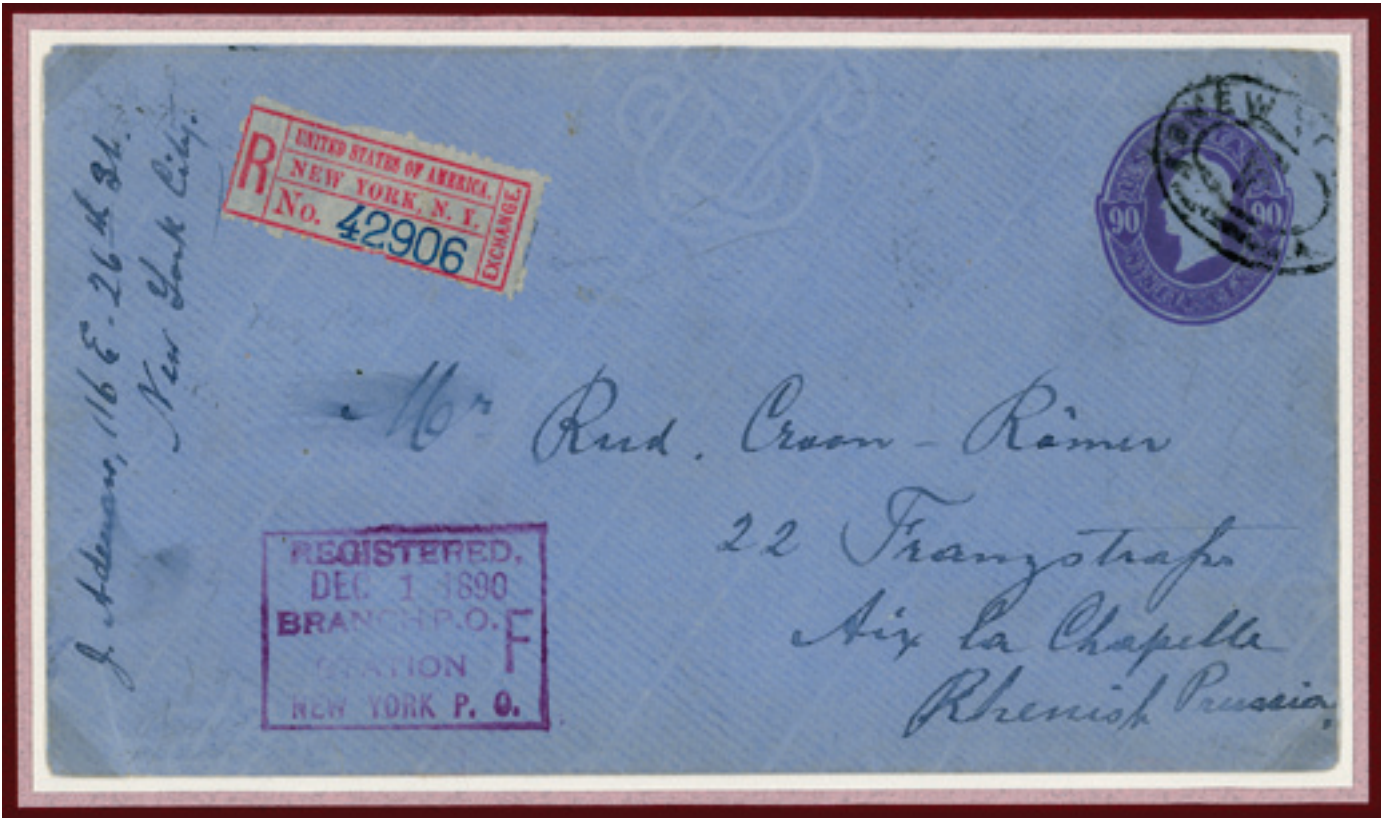 J. Ademaw, 116 E - 26th St.
New York City.
R
UNITED STATES OF AMERICA.
NEW YORK, N. Y.
No. 42906
EXCHANGE.
NEW
90 90
Mr Rud. Croon - Römer
22 Franzstrasse
Aix la Chapelle
Rhenish Prussia,
REGISTERED,
DEC 1 1890
BRANCH P.O.
F
STATION
NEW YORK P. O.